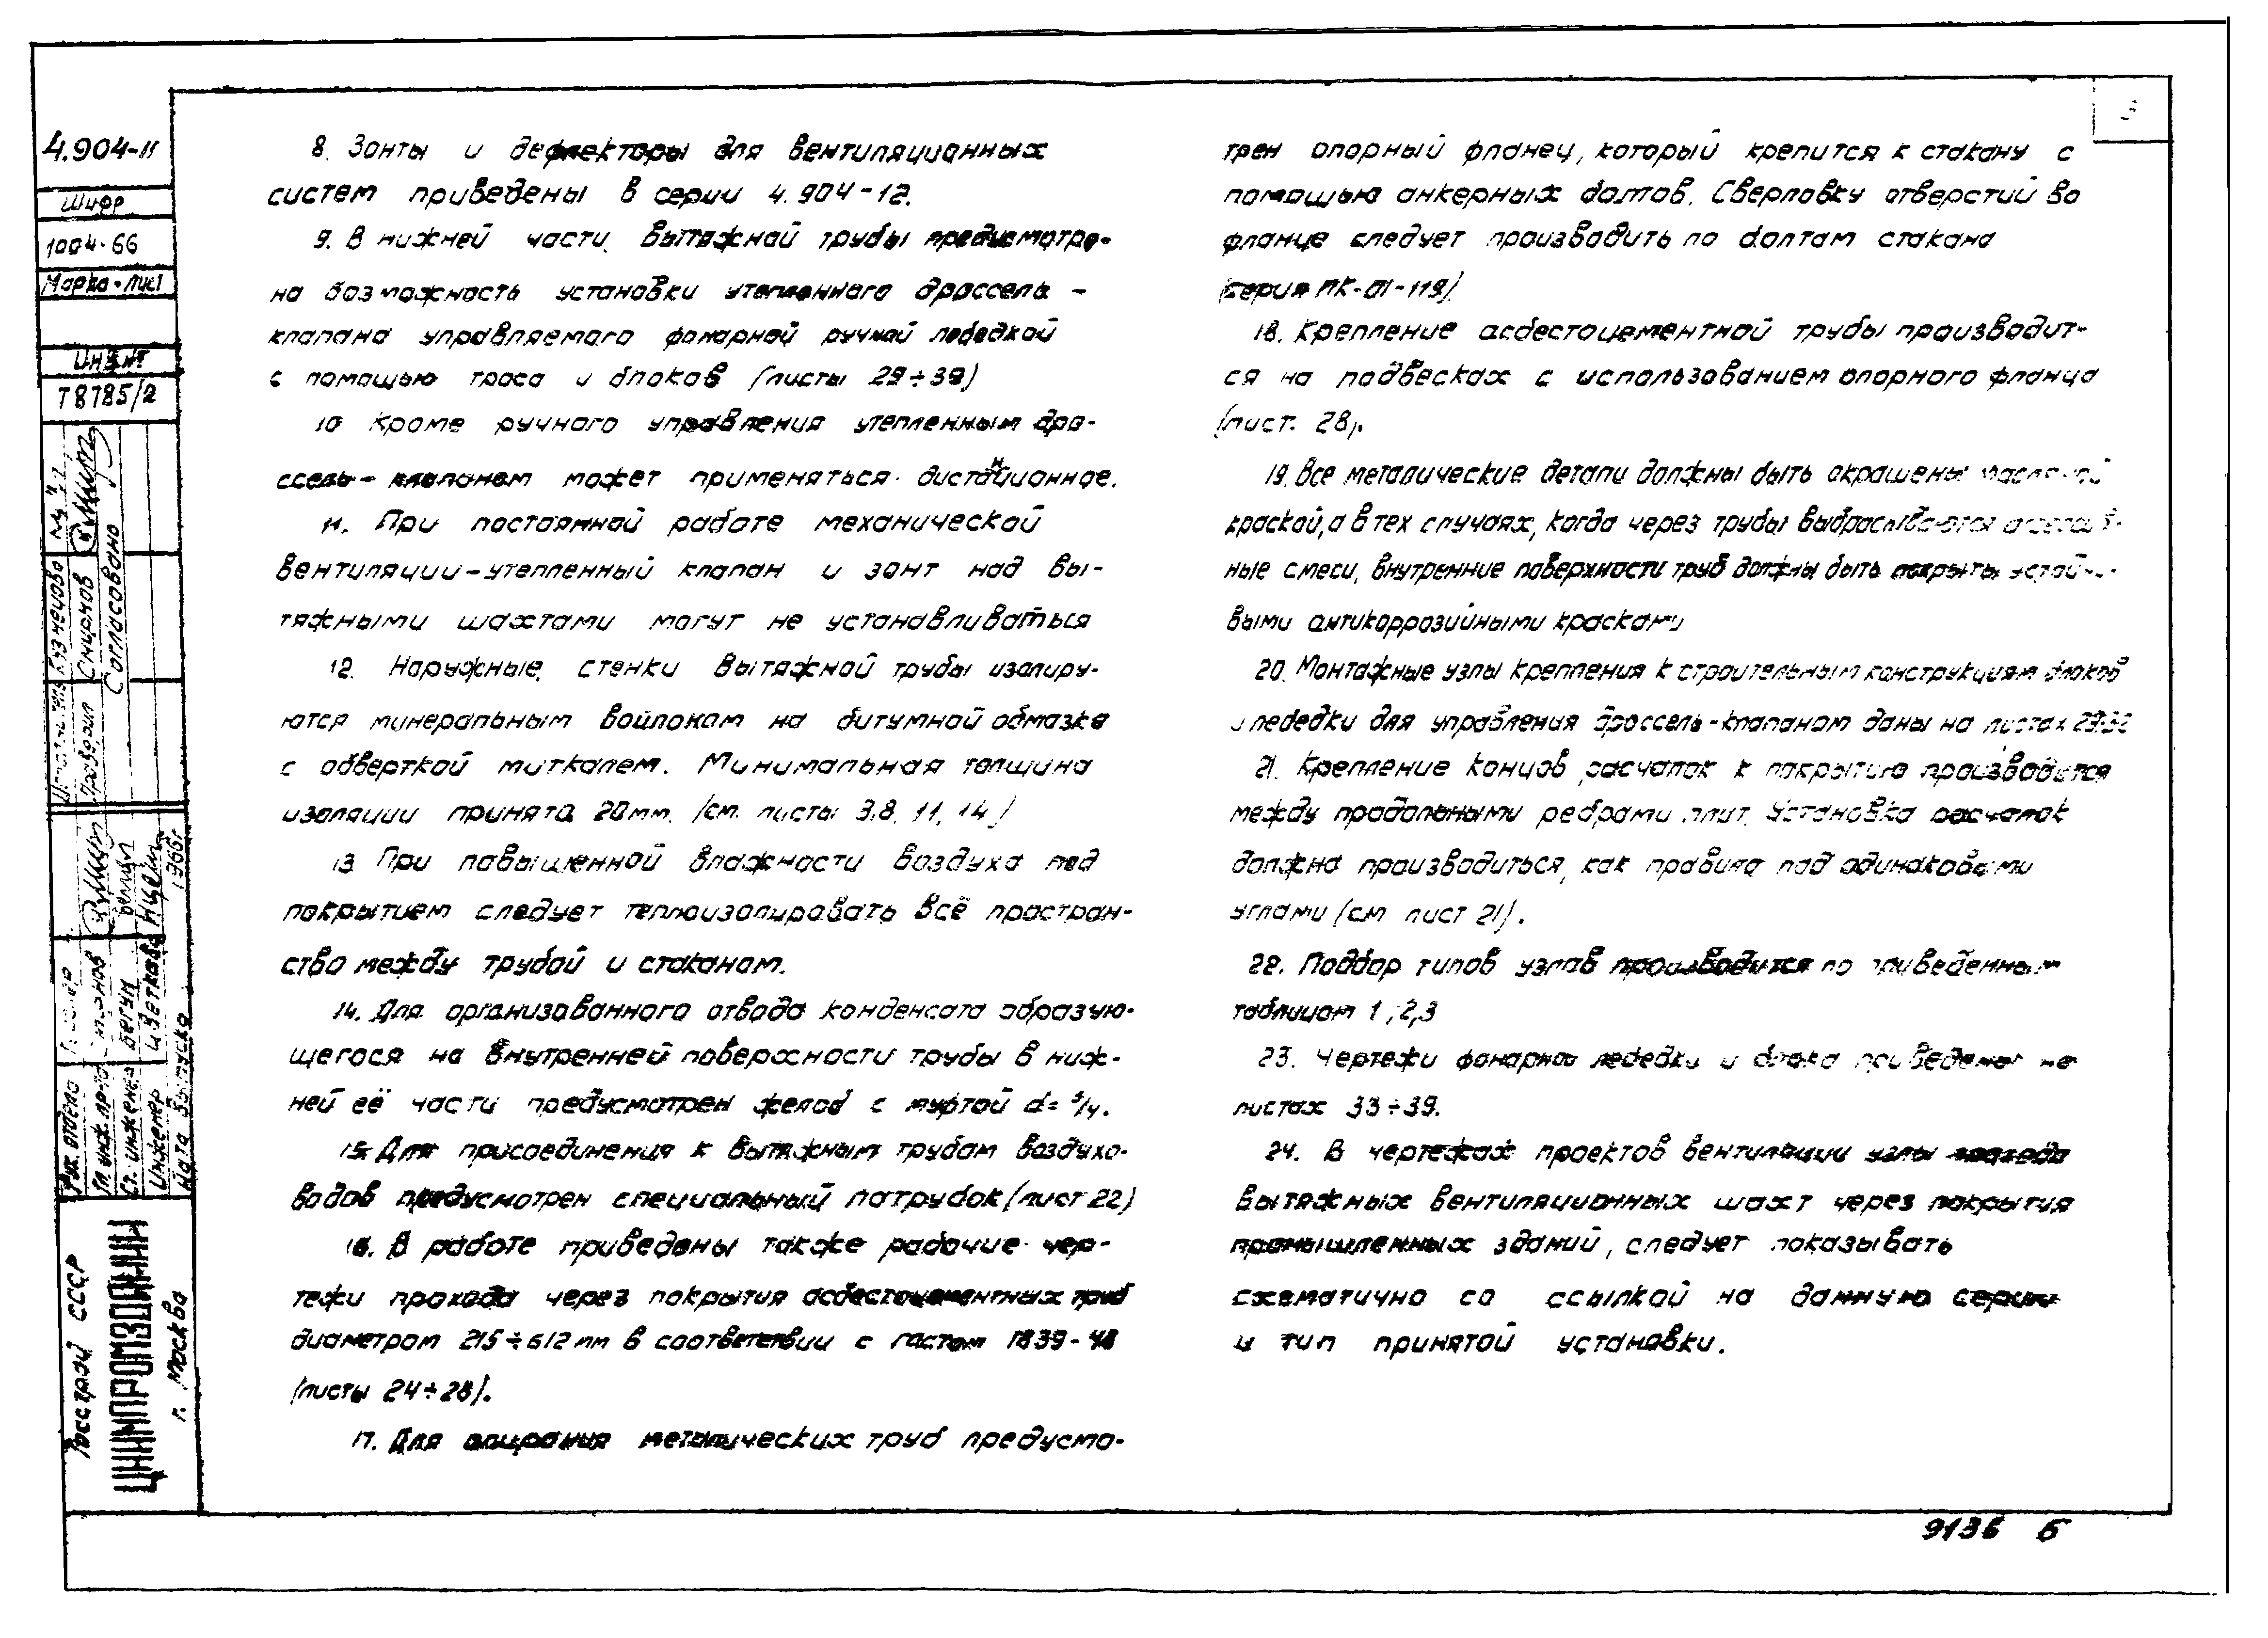 3
4.904-11
Шифр
1004-66
Марка-лист
Инв.№
Т8785/2
Кузнецова
Смирнов
Проверил
Согласовано
Бегун
Цветкова
1966г.
Рук. отдела
Гл. инж. пр-та
Ст. инженер
Инженер
Дата выпуска
Госстрой СССР
ЦНИИПРОМЗДАНИЙ
г. Москва
8. Зонты и дефлекторы для вентиляционных
систем приведены в серии 4.904-12.
9. В нижней части вытяжной трубы предусмотре-
на возможность установки утепленного дроссель-
клапана управляемого фонарной ручной лебедкой
с помощью троса и блоков /листы 29÷39/
10 Кроме ручного управления утепленным дро-
ссель-клапаном может применяться дистанционное.
11. При постоянной работе механической
вентиляции-утепленный клапан и зонт над вы-
тяжными шахтами могут не устанавливаться
12. Наружные стенки вытяжной трубы изолиру-
ются минеральным войлоком на битумной обмазке
с обверткой миткалем. Минимальная толщина
изоляции принята 20мм. /см. листы 3,8, 11, 14/
13 При повышенной влажности воздуха под
покрытием следует теплоизолировать всё простран-
ство между трубой и стаканом.
14. Для организованного отвода конденсата образую-
щегося на внутренней поверхности трубы в ниж-
ней её части предусмотрен желоб с муфтой d= 3/4.
15. Для присоединения к вытяжным трубам воздухо-
водов предусмотрен специальный патрубок /лист 22/
16. В работе приведены также рабочие чер-
тежи прохода через покрытия асбестоцементных труб
диаметром 215÷612 мм в соответствии с гостом 1839-48
/листы 24÷28/.
17. Для опирания металических труб предусмо-
трен опорный фланец, который крепится к стакану с
помощью анкерных болтов. Сверловку отверстий во
фланце следует производить по болтам стакана
/серия ПК-01-119/
18. Крепление асбестоцементной трубы производит-
ся на подвесках с использованием опорного фланца
/лист. 28/.
19. Все металические детали должны быть окрашены масляной
краской, а в тех случаях, когда через трубы выбрасываются агрессив-
ные смеси, внутренние поверхности труб должны быть покрыты устойчи-
выми антикоррозийными красками
20. Монтажные узлы крепления к строительным конструкциям блоков
и лебедки для управления дроссель-клапаном даны на листах 29÷32
21. Крепление концов расчалок к покрытию производится
между продольными ребрами плит. Установка расчалок
должна производиться, как правило под одинаковыми
углами /см лист 21/.
22. Подбор типов узлов производится по приведенным
таблицам 1,2,3
23. Чертежи фонарной лебедки и блока приведены на
листах 33÷39.
24. В чертежах проектов вентиляции узлы прохода
вытяжных вентиляционных шахт через покрытия
промышленных зданий, следует показывать
схематично со ссылкой на данную серию
и тип принятой установки.
9136 6